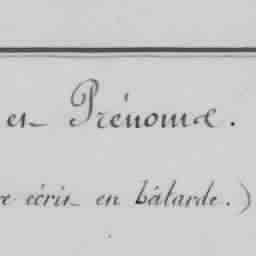 et Prénoms.
écrit en bâtarde.)